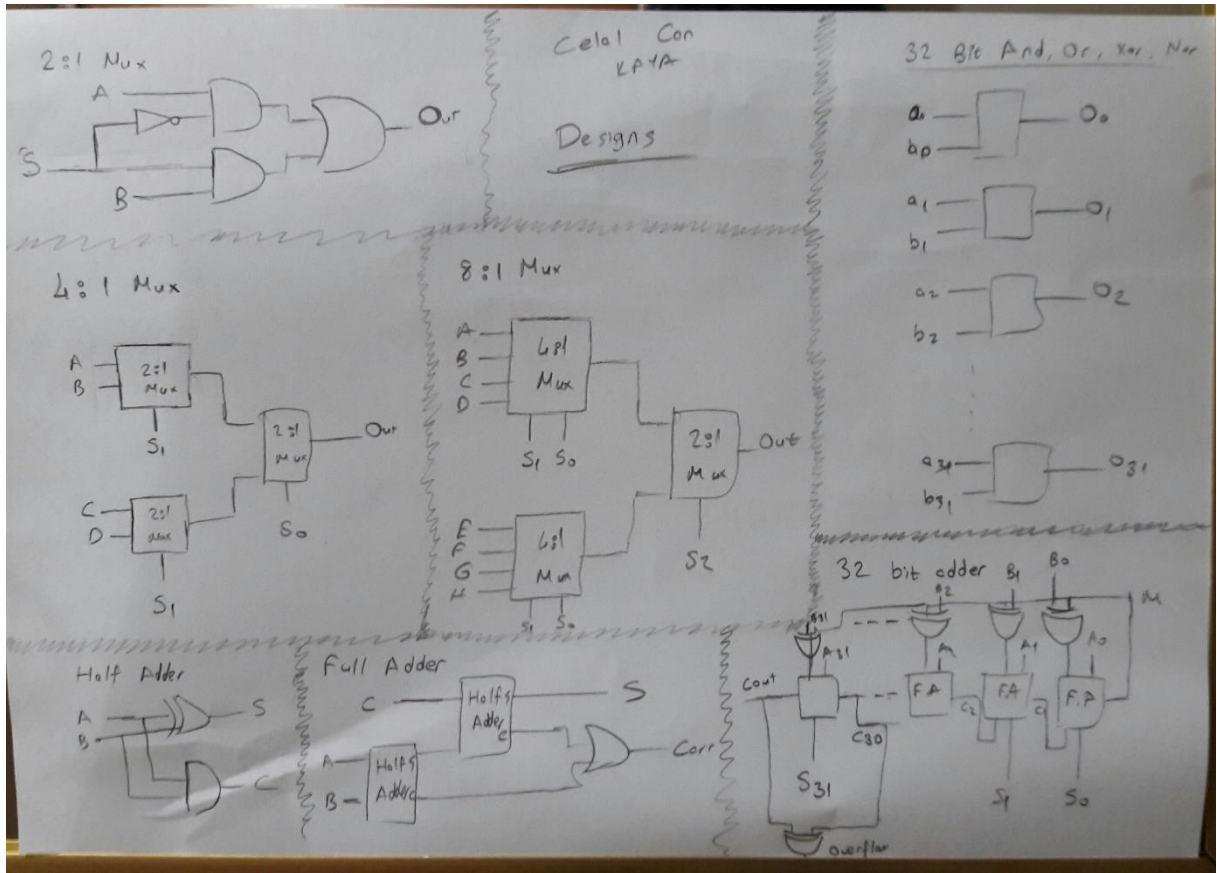 2:1 Mux
A
S
B
Out
Celal Can
KAYA
Designs
32 Bit And, Or, Xor, Nor
a0
b0
O0
a1
b1
O1
a2
b2
O2
a31
b31
O31
4:1 Mux
A
B
2:1
Mux
S1
C
D
2:1
Mux
S1
2:1
Mux
S0
Out
8:1 Mux
A
B
C
D
4:1
Mux
S1 S0
E
F
G
H
4:1
Mux
S1 S0
2:1
Mux
S2
Out
Half Adder
A
B
S
C
Full Adder
C
Half S
Adder C
S
A
B
Half S
Adder C
32 bit adder
B31
B2
B1
B0
M
A31
A1
A0
Cout
F.A
F.A
F.A
C30
C2
C1
S31
S1
S0
Overflow